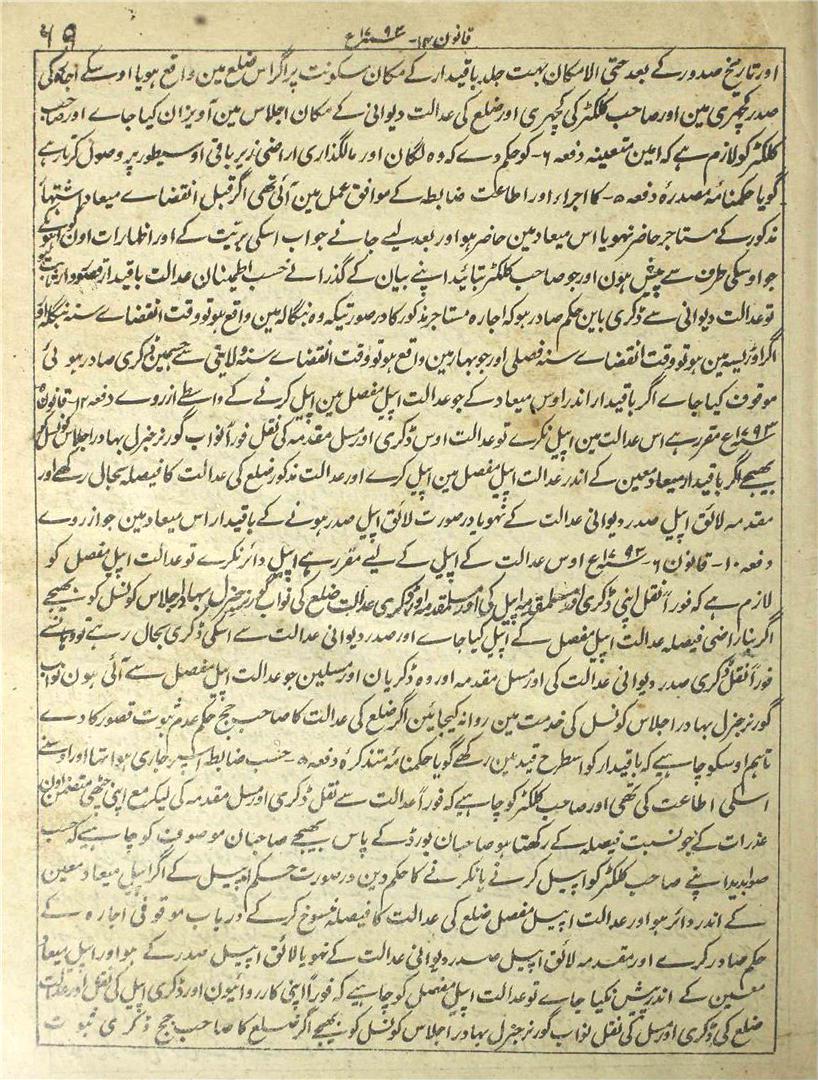 قانون ۱۴- ۱۷۹۳ع ۶۵
اور تاریخ صدور کے بعد حتی الامکان بہت جلد باقیدار کے مکان سکونت پر اگر اس ضلع مین واقع ہو یا اوسکے اجارہ کی
صدر کچہری مین اور صاحب کلکٹر کی کچہری اور ضلع کی عدالت دیوانی کے مکان اجلاس مین آویزان کیا جاے اور صاحب
کلکٹر کو لازم ہے کہ امین متعینہ دفعہ ۶- کو حکم دے کہ وہ لگان اور مالگذاری اراضی زیر باقی اوسیطور پر وصول کرتا رہے
گویا حکمنامہ مصدرہ دفعہ ۵- کا اجراء اور اطاعت ضابطہ کے موافق عمل مین آئی تھی اگر قبل انقضاے میعاد اشتہار
مذکور کے مستاجر حاضر نہو یا اس میعاد مین حاضر ہو اور بعد لیے جانے جواب اسکی بریت کے اور اظہارات اون گواہونکے
جو اوسکی طرف سے پیش ہون اور جو صاحب کلکٹر بتائید اپنے بیان کے گذرانے حسب اطمینان عدالت باقیدار قصوروار ثابت ہو
تو عدالت دیوانی سے ڈکری باین حکم صادر ہو کہ اجارہ مستاجر مذکور کا درصورتیکہ وہ بنگالہ مین واقع ہو تو وقت انقضاے سنہ بنگلہ اور
اگر اوڑیسہ مین ہو تو وقت انقضاے سنہ فصلی اور جو بہار مین واقع ہو تو وقت انقضاے سنہ ولایتی سے جسمین ڈکری صادر ہوئی
موقوف کیا جاے اگر باقیدار اندر اوس میعاد کے جو عدالت اپیل مفصل مین اپیل کرنے کے واسطے ازروے دفعہ ۱۲- قانون ۵
۱۷۹۳ع مقرر ہے اس عدالت مین اپیل نکرے تو عدالت اوس ڈکری اور مسل مقدمہ کی نقل فوراً نواب گورنر جنرل بہادر اجلاس کونسل کو
بھیجے اگر باقیدار میعاد معین کے اندر عدالت اپیل مفصل مین اپیل کرے اور عدالت مذکور ضلع کی عدالت کا فیصلہ بحال رکھے اور
مقدمہ لائق اپیل صدر دیوانی عدالت کے نہو یا درصورت لائق اپیل صدر ہونے کے باقیدار اس میعاد مین جو ازروے
دفعہ ۱۰- قانون ۶- ۱۷۹۳ع اوس عدالت کے اپیل کے لیے مقرر ہے اپیل دائر نکرے تو عدالت اپیل مفصل کو
لازم ہے کہ فوراً نقل اپنی ڈکری اور مسل مقدمہ اپیل کی اور مسل مقدمہ اور ڈکری عدالت ضلع کی نواب گورنر جنرل بہادر اجلاس کونسل کو بھیجے
اگر بناراضی فیصلہ عدالت اپیل مفصل کے اپیل کیا جاے اور صدر دیوانی عدالت سے اسکی ڈکری بحال رہے تو وہانسے
فوراً نقل ڈکری صدر دیوانی عدالت کی اور مسل مقدمہ اور وہ ڈکریان اور مسلین جو عدالت اپیل مفصل سے آئی ہون نواب
گورنر جنرل بہادر اجلاس کونسل کی خدمت مین روانہ کیجائین اگر ضلع کی عدالت کا صاحب جج حکم عدم ثبوت قصور کا دے
تاہم اوسکو چاہیے کہ باقیدار کو اسطرح قید مین رکھے گویا حکمنامہ متذکرہ دفعہ ۵- حسب ضابطہ اسپر جاری ہوا تھا اور اوسنے
اسکی اطاعت کی تھی اور صاحب کلکٹر کو چاہیے کہ فوراً عدالت سے نقل ڈکری اور مسل مقدمہ کی لیکر مع اپنی چٹھی متضمن اون
عذرات کے جو نسبت فیصلہ کے رکھتا ہو صاحبان بورڈ کے پاس بھیجے صاحبان موصوف کو چاہیے کہ حسب
صوابدید اپنے صاحب کلکٹر کو اپیل کرنے یا نکرنے کا حکم دین درصورت حکم اپیل کے اگر اپیل میعاد معین
کے اندر دائر ہو اور عدالت اپیل مفصل ضلع کی عدالت کا فیصلہ منسوخ کرکے درباب موقوفی اجارہ کے
حکم صادر کرے اور مقدمہ لائق اپیل صدر دیوانی عدالت کے نہو یا لائق اپیل صدر کے ہو اور اپیل میعاد
معین کے اندر پیش نکیا جاے تو عدالت اپیل مفصل کو چاہیے کہ فوراً اپنی کارروائیون اور ڈکری اپیل کی نقل اور عدالت
ضلع کی ڈکری اور مسل کی نقل نواب گورنر جنرل بہادر اجلاس کونسل کو بھیجے اگر ضلع کا صاحب جج ڈکری ثبوت